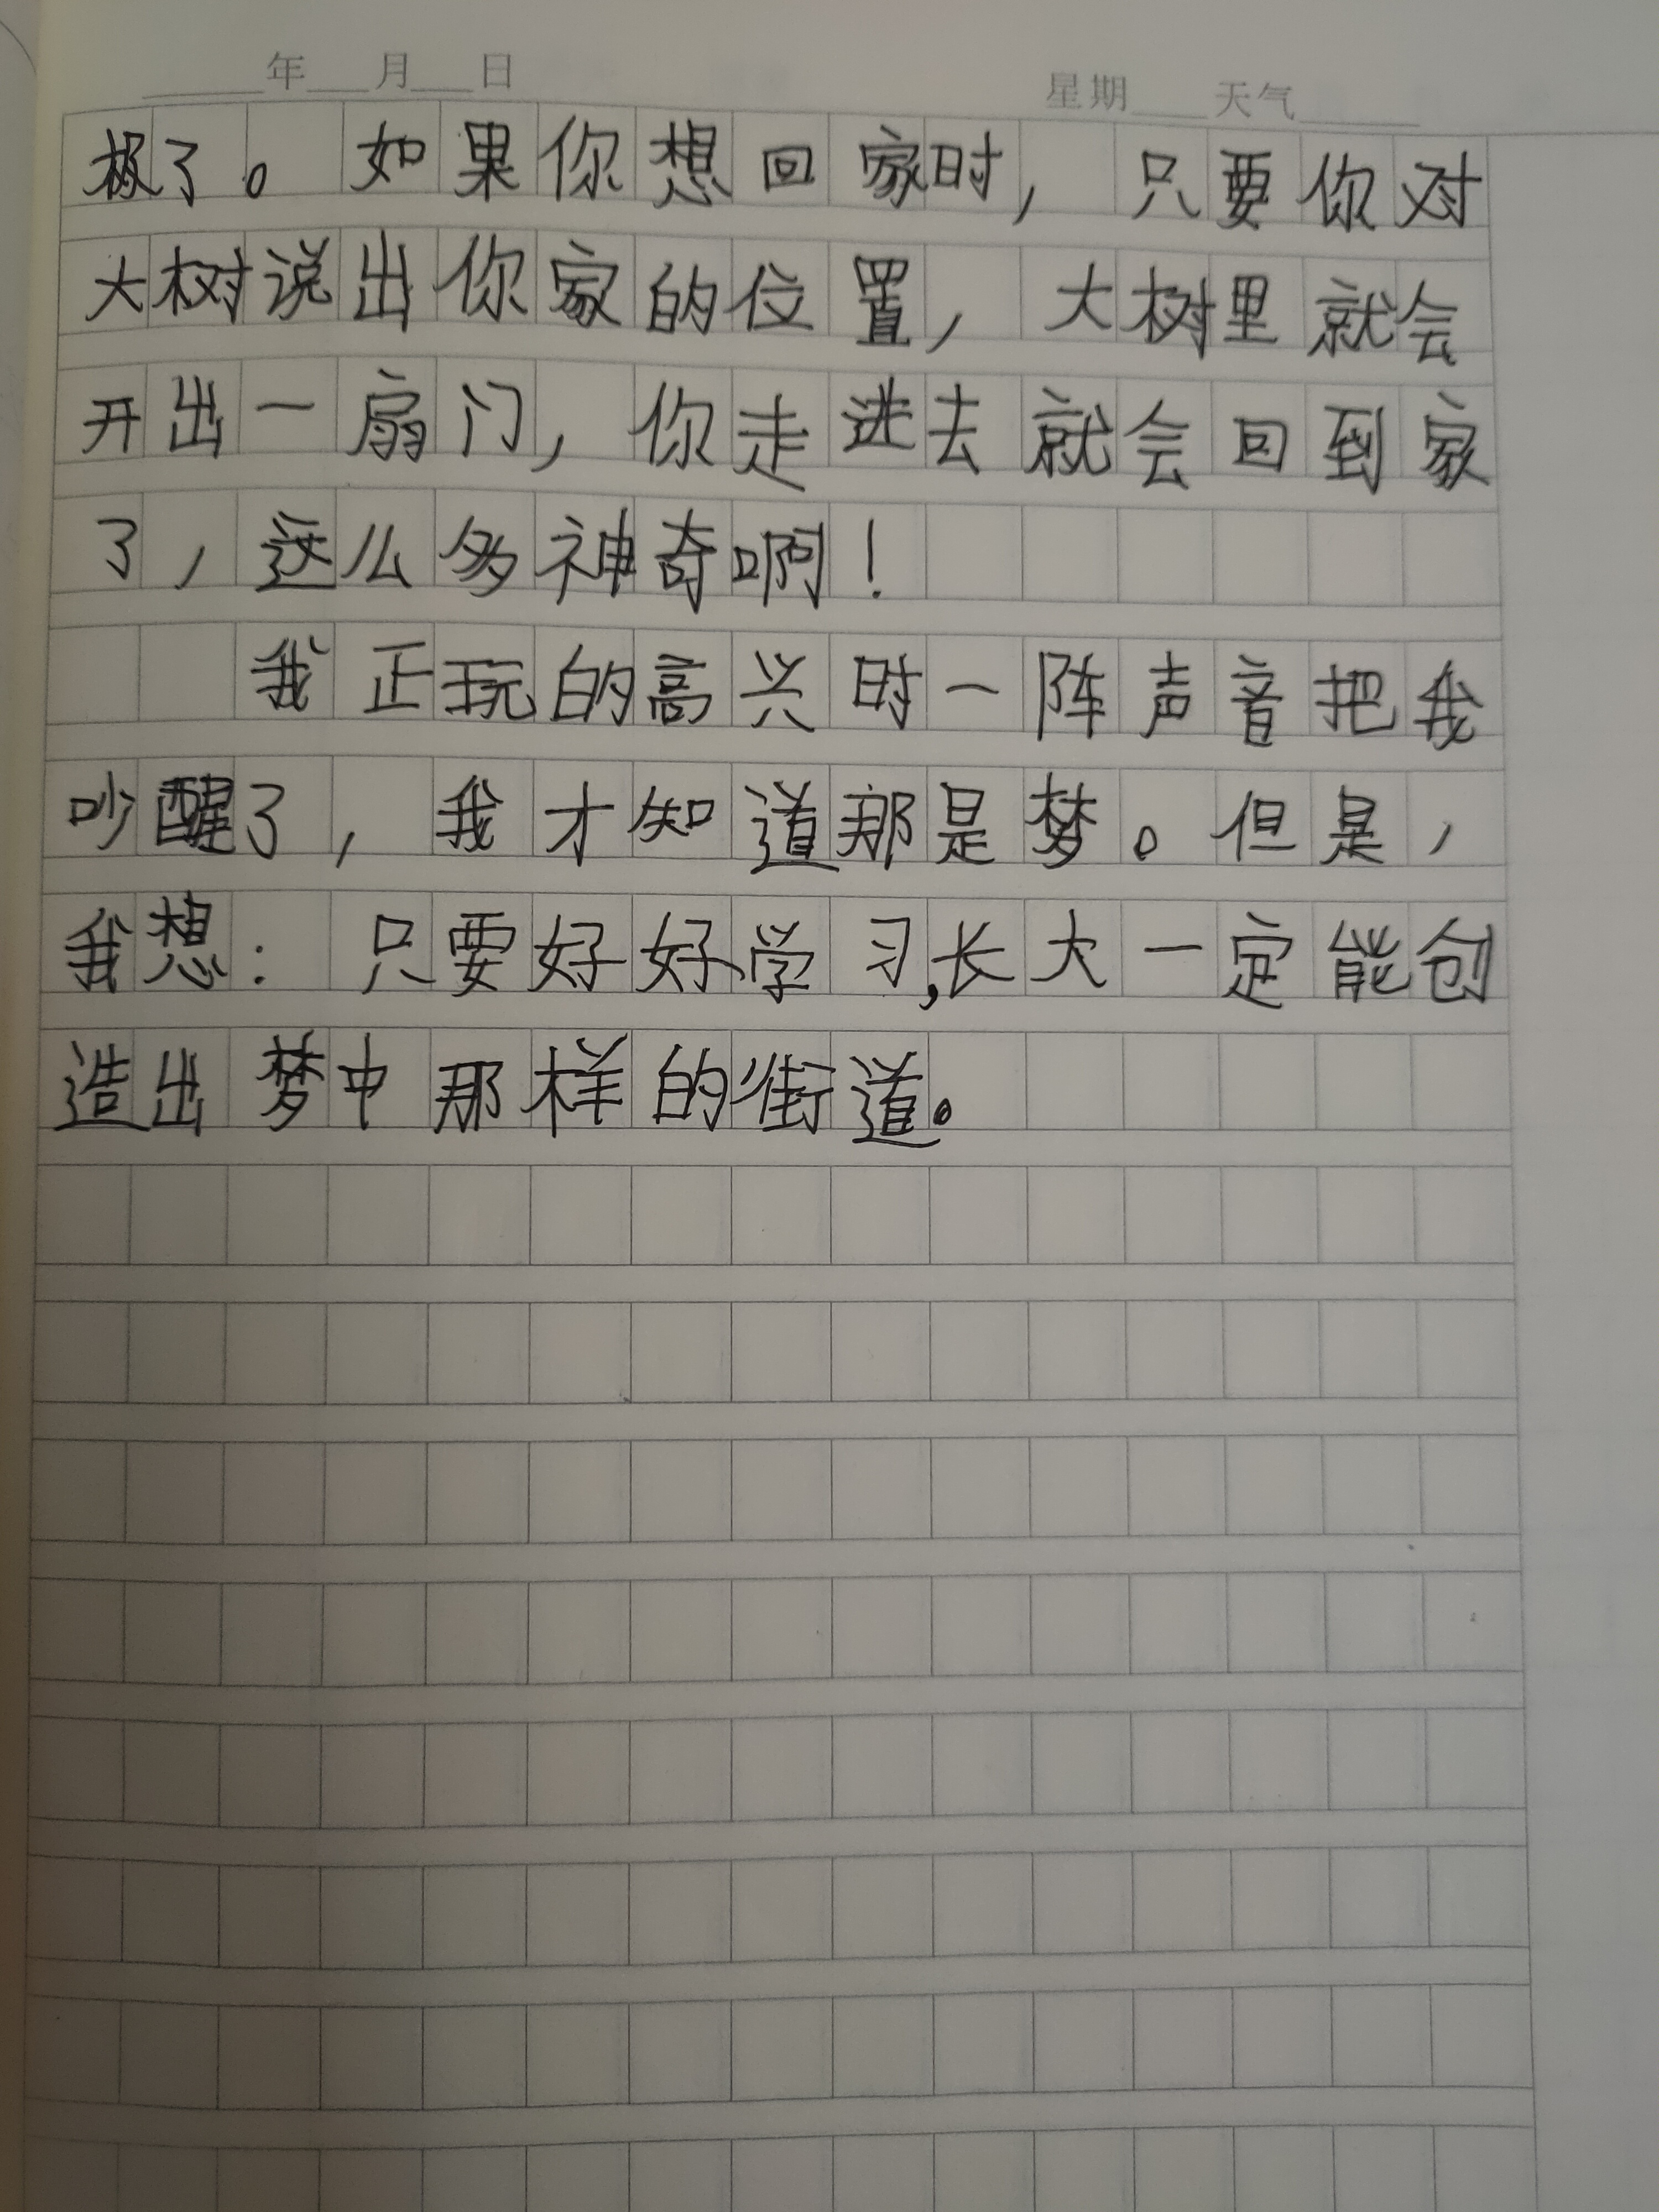 年 月 日 星期 天气
极了。如果你想回家时，只要你对
大树说出你家的位置，大树里就会
开出一扇门，你走进去就会回到家
了，这么多神奇啊！
我正玩的高兴时一阵声音把我
吵醒了，我才知道那是梦。但是，
我想：只要好好学习，长大一定能创
造出梦中那样的街道。